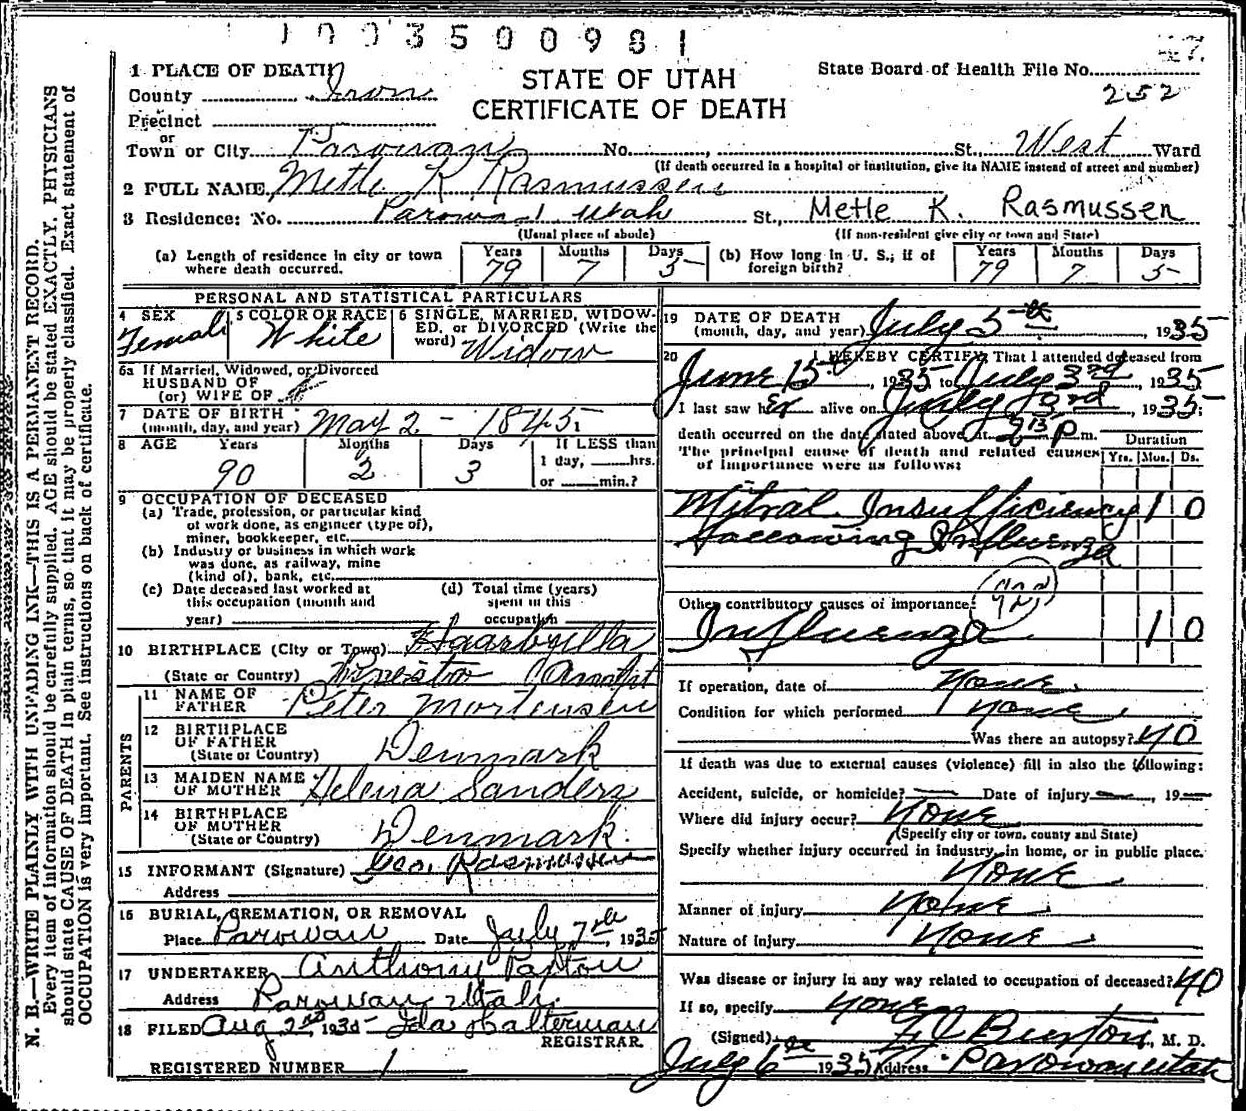 1003500981
STATE OF UTAH
CERTIFICATE OF DEATH
State Board of Health File No.
252
1 PLACE OF DEATH
County Iron
Precinct
or
Town or City Parowan No. , St., West Ward
(If death occurred in a hospital or institution, give its NAME instead of street and number)
2 FULL NAME Metle K Rasmussen
3 Residence: No. Parowan Utah St., Metle K. Rasmussen
(Usual place of abode) (If non-resident give city or town and State)
(a) Length of residence in city or town where death occurred. Years 79 Months 7 Days 5 (b) How long in U. S.; if of foreign birth? Years 79 Months 7 Days 5
PERSONAL AND STATISTICAL PARTICULARS
4 SEX Female
5 COLOR OR RACE White
6 SINGLE, MARRIED, WIDOWED, or DIVORCED (Write the word) Widow
6a If Married, Widowed, or Divorced
HUSBAND OF
(or) WIFE OF
7 DATE OF BIRTH
(month, day, and year) May 2 - 1845
8 AGE Years Months Days If LESS than
90 2 3 1 day, hrs.
or min.?
9 OCCUPATION OF DECEASED
(a) Trade, profession, or particular kind
of work done, as engineer (type of),
miner, bookkeeper, etc.
(b) Industry or business in which work
was done, as railway, mine
(kind of), bank, etc.
(c) Date deceased last worked at
this occupation (month and
year)
(d) Total time (years)
spent in this
occupation
10 BIRTHPLACE (City or Town)
(State or Country)
PARENTS
11 NAME OF
FATHER Peter Mortensen
12 BIRTHPLACE
OF FATHER
(State or Country) Denmark
13 MAIDEN NAME
OF MOTHER Helena Sanders
14 BIRTHPLACE
OF MOTHER
(State or Country) Denmark.
15 INFORMANT (Signature) Geo. Rasmussen
Address
16 BURIAL, CREMATION, OR REMOVAL
Place Parowan Date July 7th, 1935
17 UNDERTAKER Anthony Paxton
Address Parowan Utah.
18 FILED Aug 2nd 1935 Ida Halterman
REGISTRAR
REGISTERED NUMBER 1
19 DATE OF DEATH
(month, day, and year) July 5th, 1935
20 I HEREBY CERTIFY, That I attended deceased from
June 15th, 1935 to July 3rd, 1935
I last saw her alive on July 3rd, 1935;
death occurred on the date stated above, at 2 15 P m.
The principal cause of death and related causes
of importance were as follows:
Duration
Yrs. Mos. Ds.
Mitral Insufficiency 1 0
Following Influenza
Other contributory causes of importance:
Influenza 1 0
If operation, date of None
Condition for which performed None
Was there an autopsy? No
If death was due to external causes (violence) fill in also the following:
Accident, suicide, or homicide? Date of injury , 19
Where did injury occur? None
(Specify city or town, county and State)
Specify whether injury occurred in industry, in home, or in public place.
None
Manner of injury None
Nature of injury None
Was disease or injury in any way related to occupation of deceased? No
If so, specify None
(Signed) Burton, M. D.
July 6th 1935 Address Parowan Utah
N. B.—WRITE PLAINLY WITH UNFADING INK—THIS IS A PERMANENT RECORD.
Every item of information should be carefully supplied. AGE should be stated EXACTLY. PHYSICIANS
should state CAUSE OF DEATH in plain terms, so that it may be properly classified. Exact statement of
OCCUPATION is very important. See instructions on back of certificate.